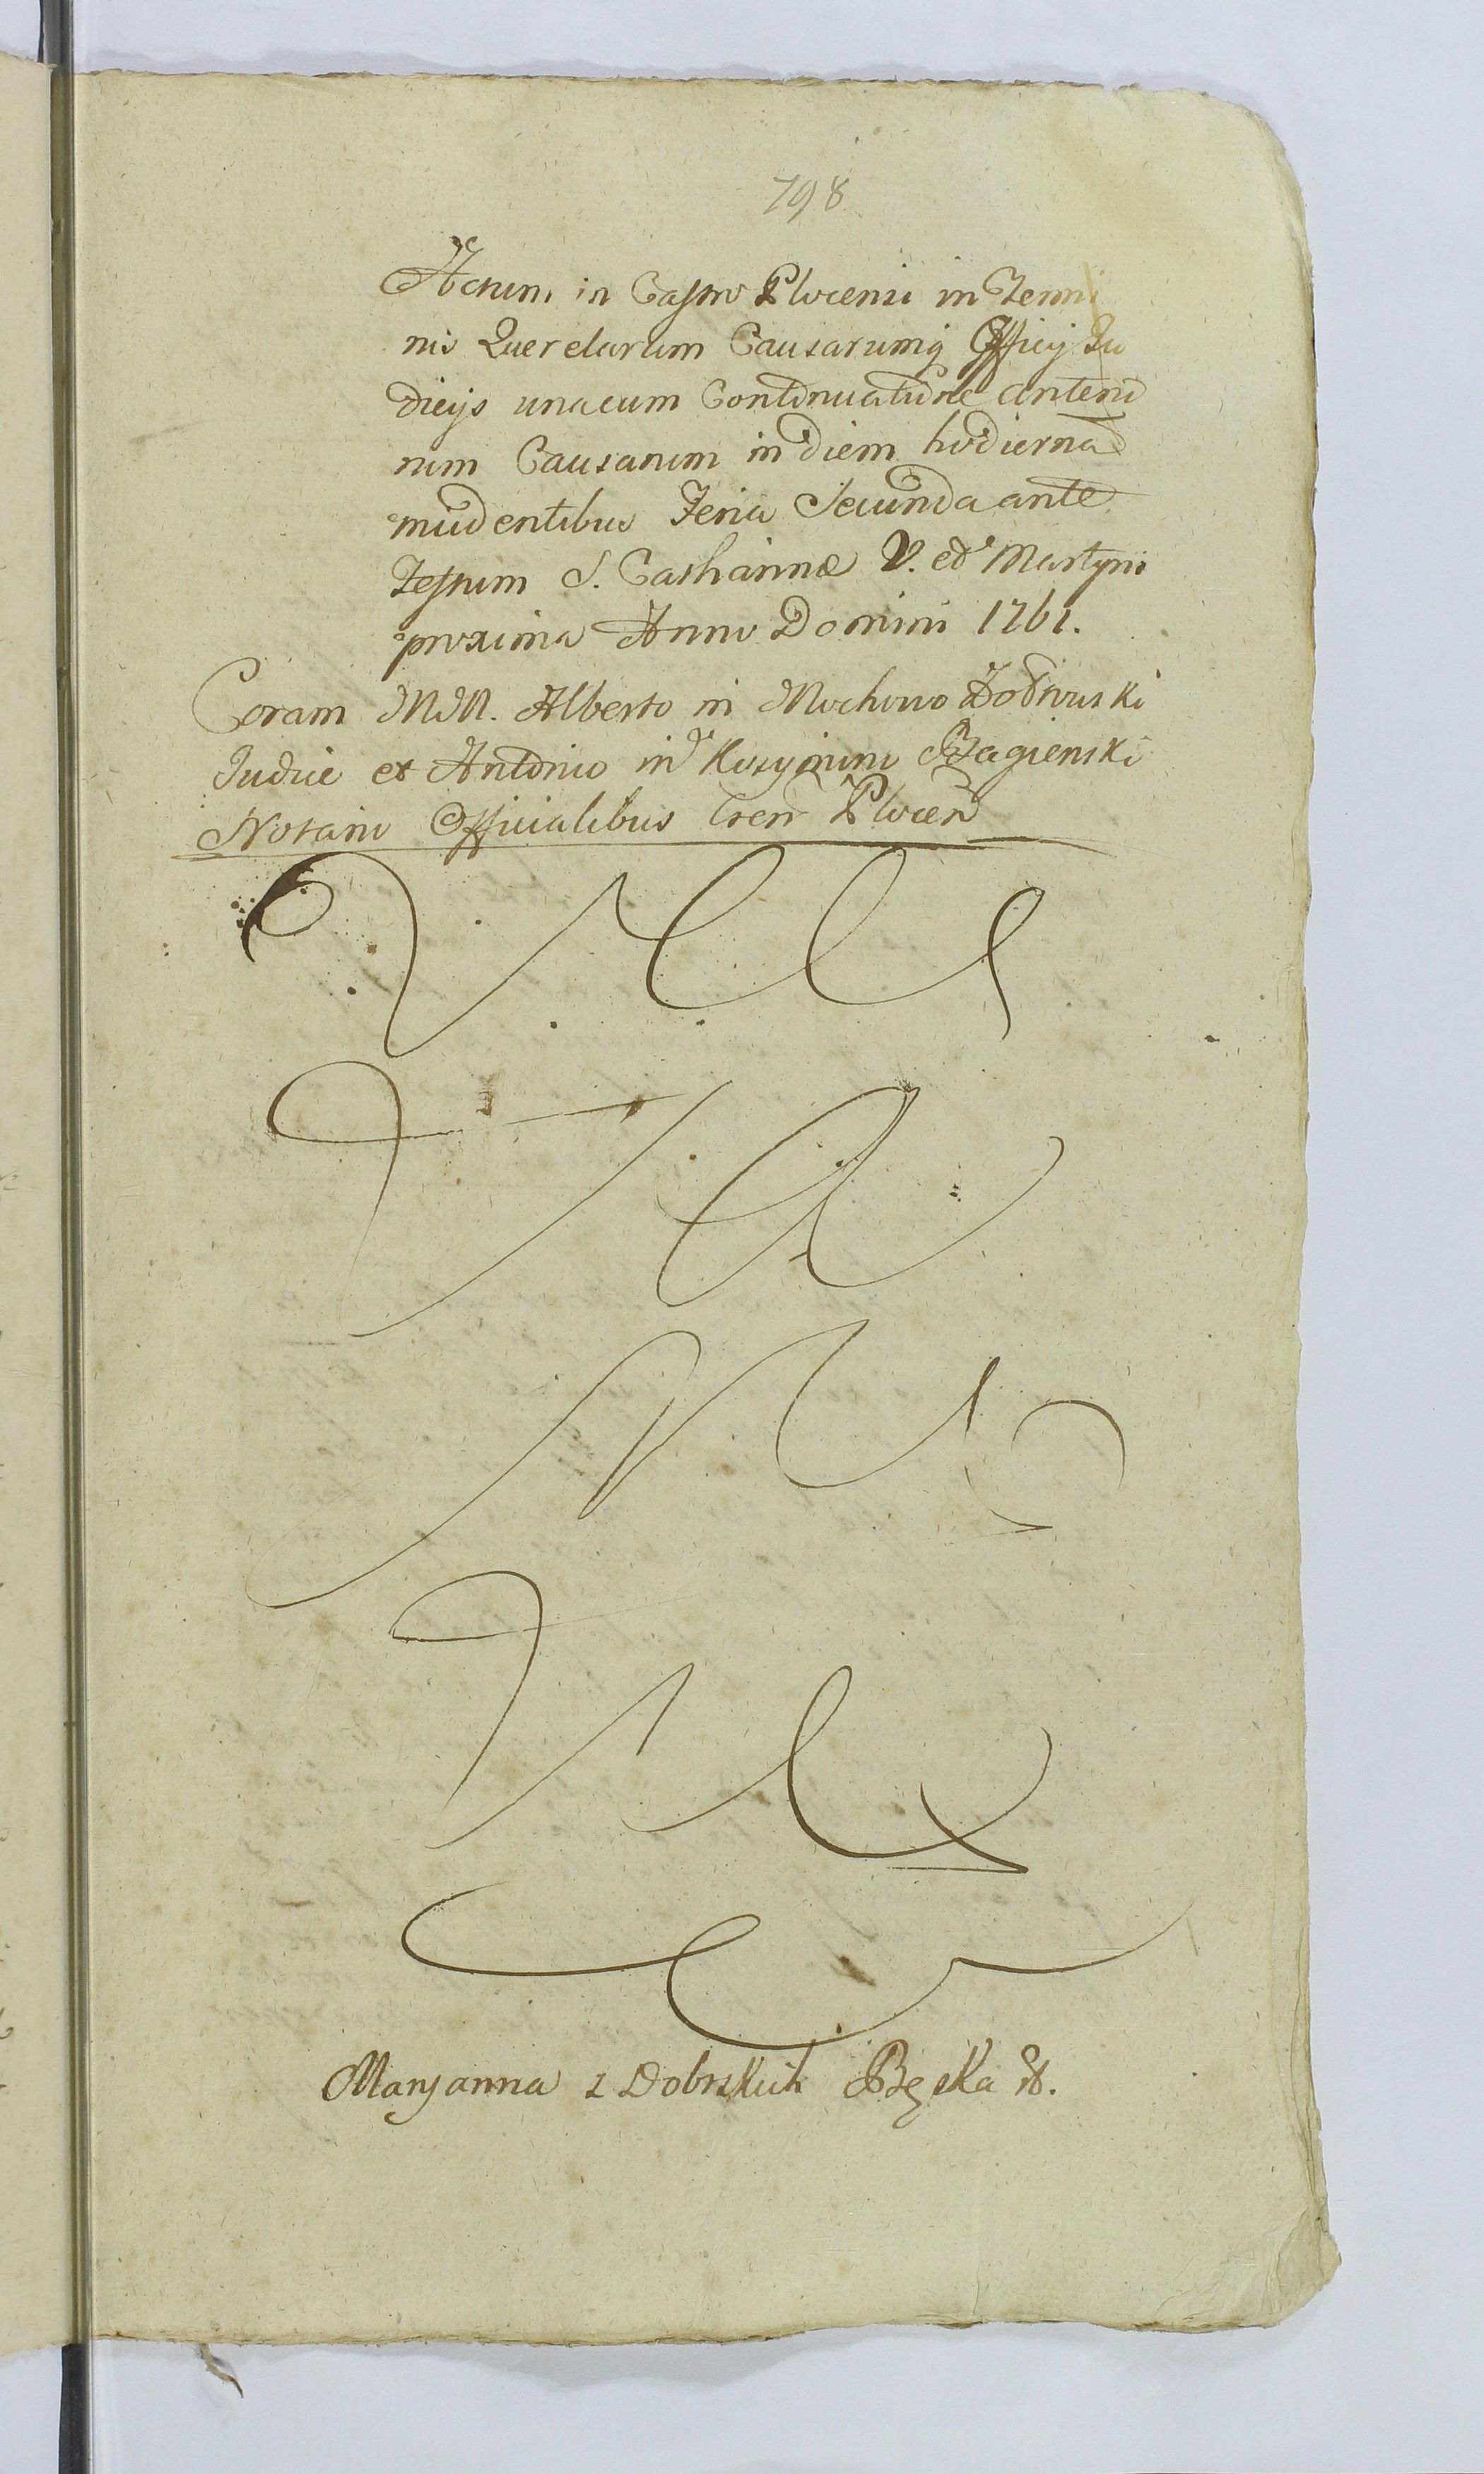 798
Actum in Castro Plocensi in Termi
nis Querelarum Causarumq Officij Ju
dicijs unacum Continuatione Anterio
rum Causarum in diem hodierna
incidentibus Feria Secunda ante
Festum S. Catharinæ V. et Martyris
proxima Anno Domini 1761.
Coram MM. Alberto in Mochowo
Judice et Antonio in Bagienski
Notario Officialibus Cren Plocen
Maryanna z Dobrskich Bęska